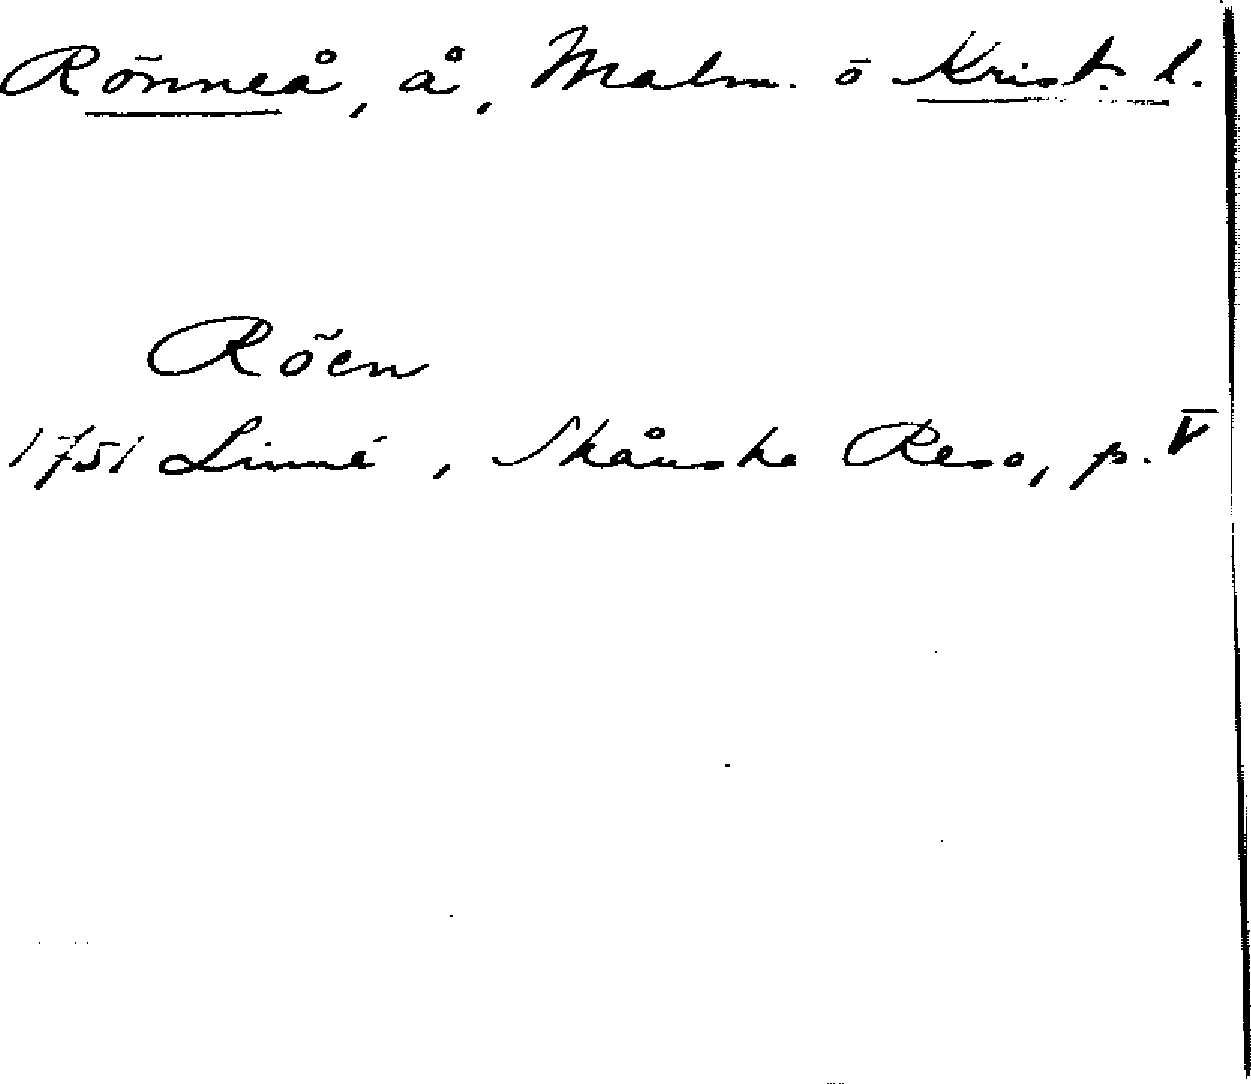 Rönneå, å, Malm. o Krist. l.
Röen
1751 Linné, Skånska Resa, p. V